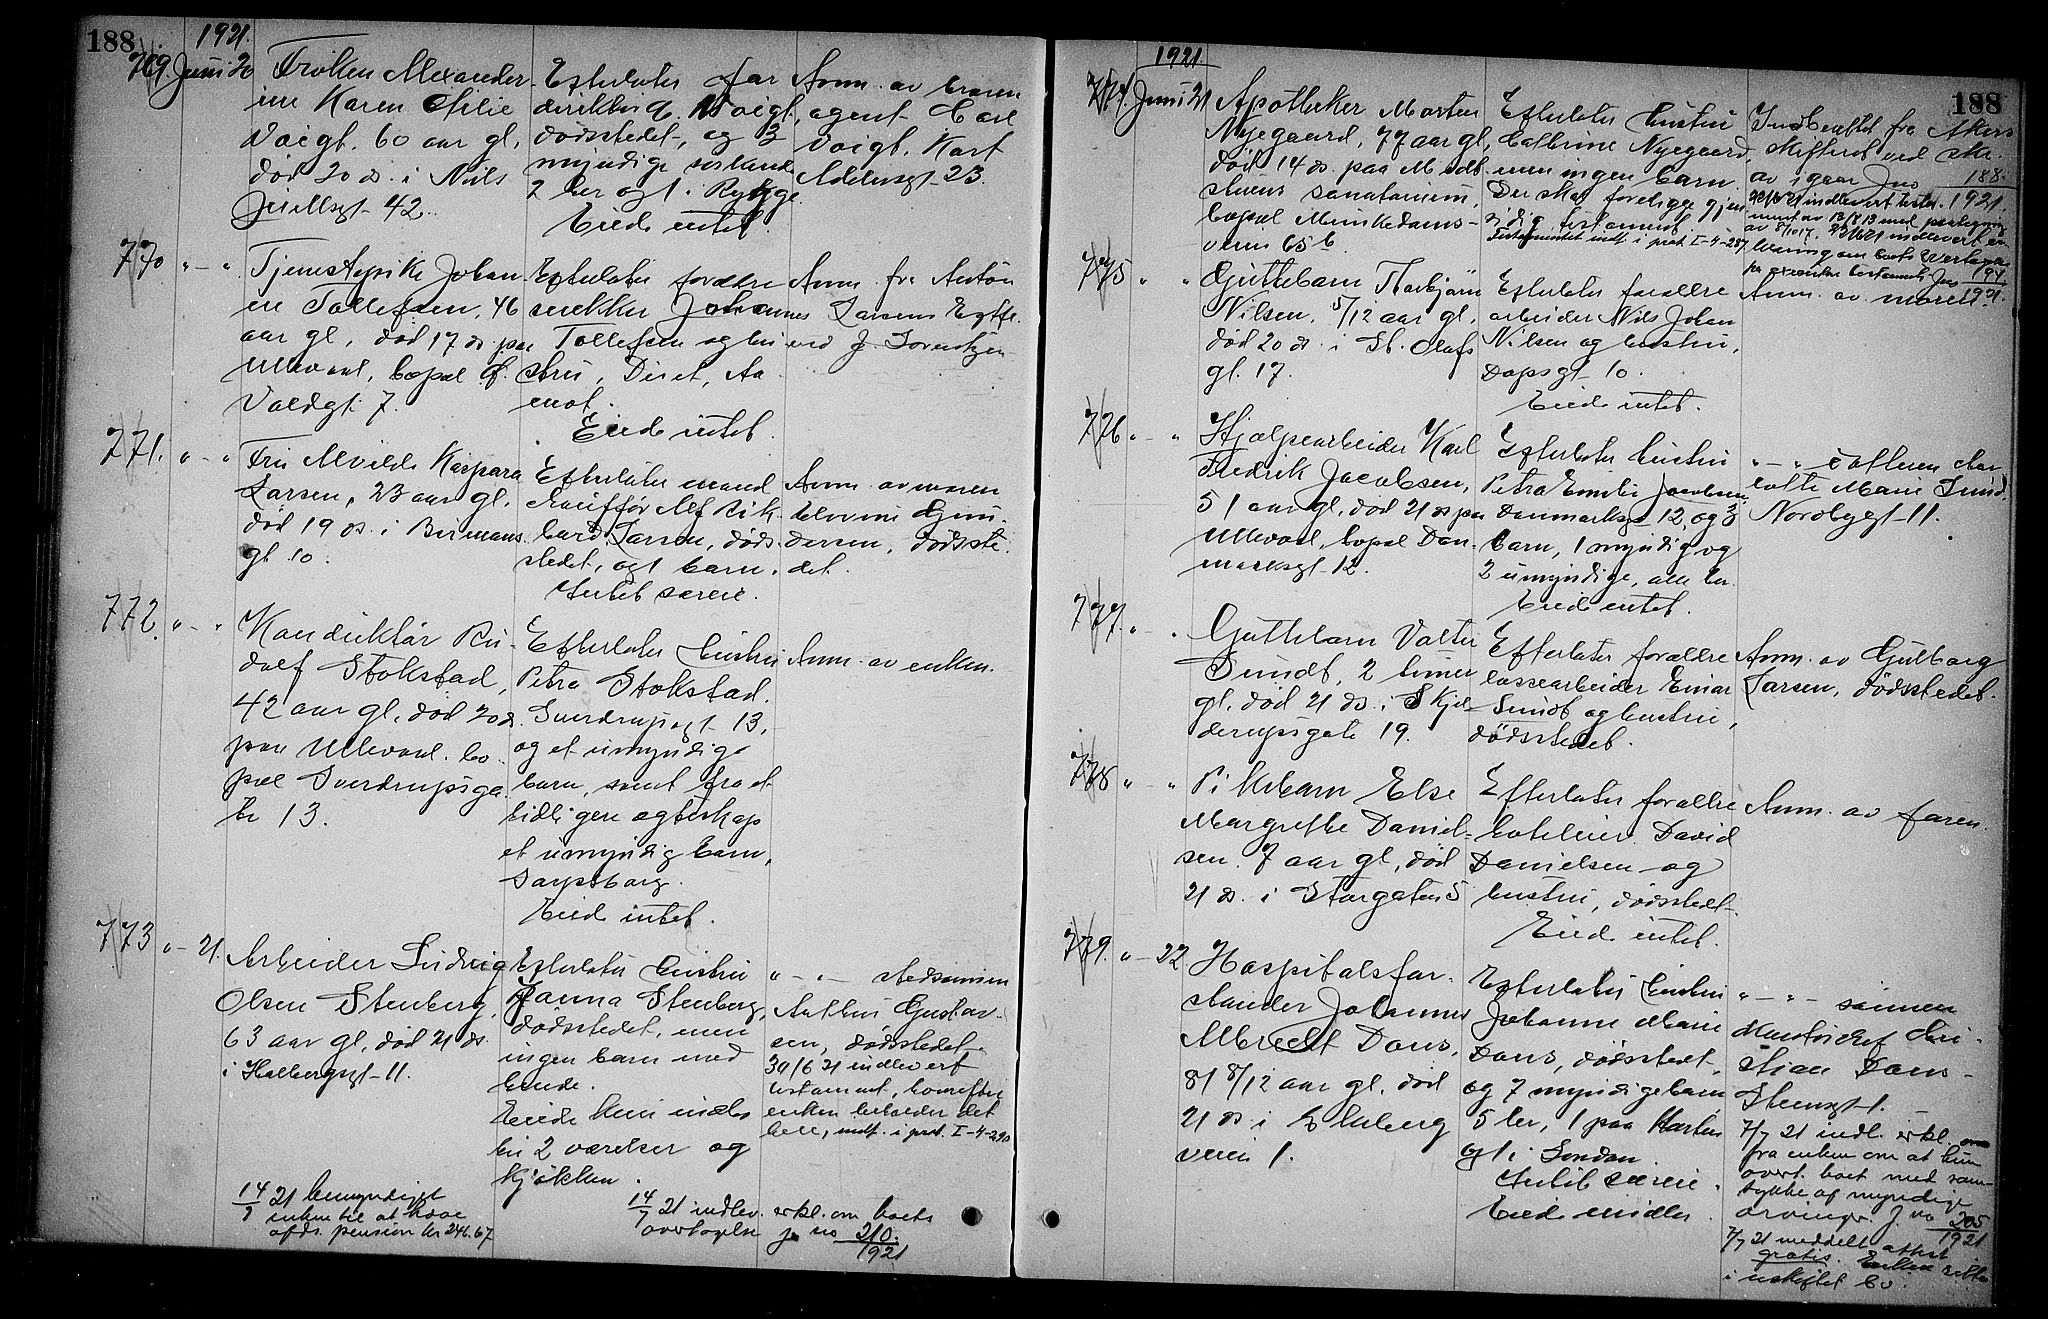 188
1921.
769. Juni 20
Frøken Alexander-
ine Karen Cilie
Voigt. 60 aar gl.
død 20 ds. i Nils
Juellsgt. 42.
Efterlater far
direktør Voigt,
dødsstedet, og 3
myndige søskende
2 her og 1 i Rygge.
Eiede intet.
Anm. av broren
agent Carl
Voigt. Kort
Adelersgt. 23.
770 " - "
Tjenestepike Johan-
ne Tollefsen, 46
aar gl, død 17 ds. paa
Ullevaal, bopæl
Voldgt. 7.
Efterlater forældre
snekker Johannes
Tollefsen og hu-
stru, Aa
mot.
Eiede intet.
Anm. fra Anton
Larsens Eftf.
ved J. Sørensen
771. " - "
Fru Alvilde Kaspara
Larsen, 23 aar gl,
død 19 ds. i Birmans
gt 10.
Efterlater mand
chauffør Alf Rik-
hard Larsen, døds-
stedet, og 1 barn.
Intet særeie.
Anm. av moren
Elevine Gun-
dersen, dødsste-
det.
772. " - "
Konduktør Ru-
dolf Stokstad,
42 aar gl. død 20 ds.
paa Ullevaal. bo-
pæl Sverdrupsga-
te 13.
Efterlater hustru
Petra Stokstad.
Sverdrupsgt. 13,
og et umyndig
barn, samt fra et
tidligere egteskap
et umyndig barn,
Sarpsborg.
Eiede intet.
Anm. av enken.
773 " - 21.
Arbeider Ludvig
Olsen Stenberg,
63 aar gl, død 21 ds.
i Holbergsgt. 11.
Efterlater hustru
Janna Stenberg,
dødsstedet, men
ingen barn med
hende.
Eiede kun indbo
til 2 værelser og
kjøkken.
" - " stedsønnen
Arthur Gustav-
sen, dødsstedet.
30/6 21 indlevert
testament, hvorefter
enken beholder det
hele, indf. i prot. I-4-290
14/7 21 bemyndiget
enken til at hæve
afds. pension kr 246.67
14/7 21 indlev. erkl. om boets
overtagelse j no 210.
1921
188
1921
774. Juni 21
Apotheker Morten
Nyegaard, 77 aar gl,
død 14 ds. paa Mesdt-
stuens sanatorium,
bopæl Munkedams-
veien 65 b
Efterlater hustru
Cathrine Nyegaard,
men ingen barn.
Der skal foreligge gjen-
sidig testament.
Testamentet indt. i prot I-4-287
Indberettet fra Akers
skifteret ved skr.
av igaar Jno 188.
1921.
22/6 21 indlevert testa-
ment av 13/8 13 med paategning
av 8/10 17. 22/6 21 indlevert er-
klæring om boets overtagelse
Jno 194
1921.
775 " "
Guttebarn Thorbjørn
Nilsen, 5/12 aar gl,
død 20 ds. i St. Olafs
gt. 17.
Efterlater forældre
arbeider Nils Johan
Nilsen og hustru,
Dopsgt. 10.
Eiede intet.
Anm. av moren.
776 " - "
Hjælpearbeider Karl
Fredrik Jacobsen,
51 aar gl, død 21 ds paa
Ullevaal, bopæl Dan-
marksgt. 12.
Efterlater hustru
Petra Emilie Jacobsen,
Danmarksgt 12, og 3
barn, 1 myndig og
2 umyndige, alle her.
Eiede intet.
" - " datteren Char
lotte Marie Smid,
Nordbygt. 11.
777. " - "
Guttebarn Valter
Sundt, 2 timer
gl, død 21 ds. i Skjel-
derupsgate 19.
Efterlater forældre
lossearbeider Einar
Sundt og hustru,
dødsstedet.
Anm. av Gulborg
Larsen, dødsstedet.
778 " - "
Pikebarn Else
Margrethe Daniel-
sen. 7 aar gl, død
21 ds. i Storgaten 5
Efterlater forældre
hoteleier David
Danielsen og
hustru, dødsstedet.
Eiede intet.
Anm. av faren.
779. " - 22
Hospitalsfor-
stander Johannes
Albrecht Dons,
81 8/12 aar gl, død
21 ds. i Ekeberg
veien 1.
Efterlater hustru
Johanne Marie
Dons, dødsstedet,
og 7 myndige barn
5 her, 1 paa Horten
og 1 i London.
Intet særeie.
Eiede midler.
" - " sønnen
Kri-
stian Dons
Steensgt. 1.
7/7 21 indl. erkl.
fra enken om at hun
overt. boet med sam-
tykke af myndige
arvinger. J no 205
1921
7/7 21 meddelt attest
gratis. Enken sitter
i uskiftet bo.